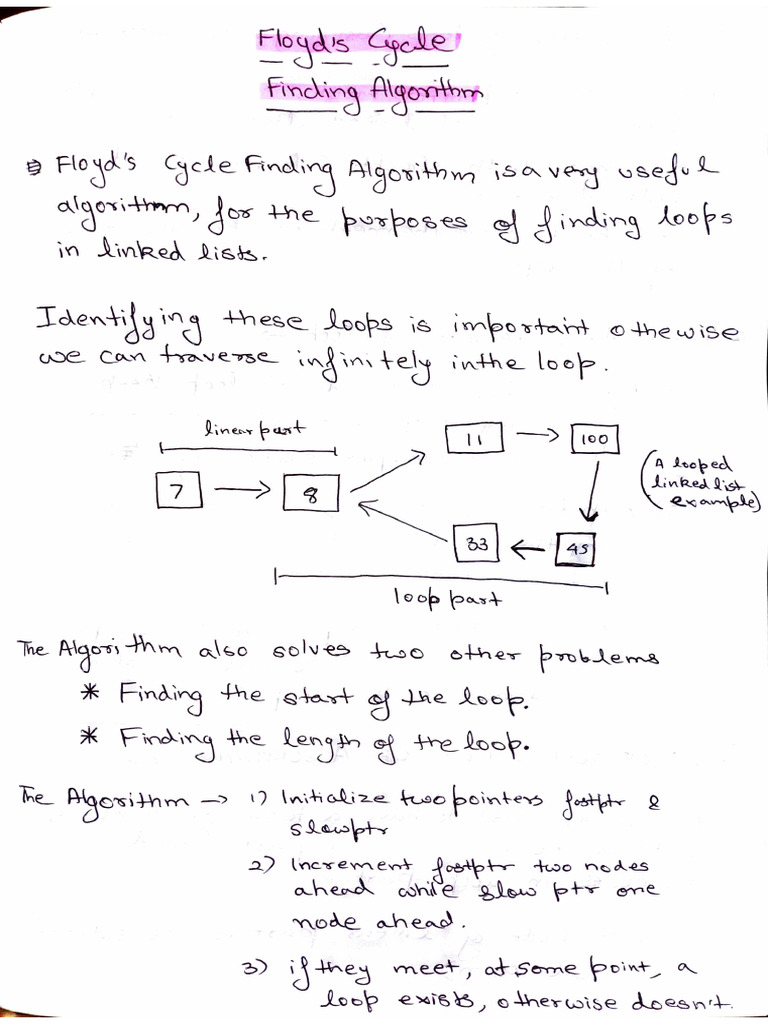 Floyd's Cycle
Finding Algorithm
Floyd's Cycle Finding Algorithm is a very useful
algorithm, for the purposes of finding loops
in linked lists.
Identifying these loops is important othewise
we can traverse infinitely in the loop.
linear part
11 → 100
7 → 8
(A looped
linked list
example)
33 ← 45
loop part
The Algorithm also solves two other problems
* Finding the start of the loop.
* Finding the length of the loop.
The Algorithm → 1) Initialize two pointers fastptr &
slowptr
2) Increment fastptr two nodes
ahead while slow ptr one
node ahead.
3) if they meet, at some point, a
loop exists, otherwise doesn't.